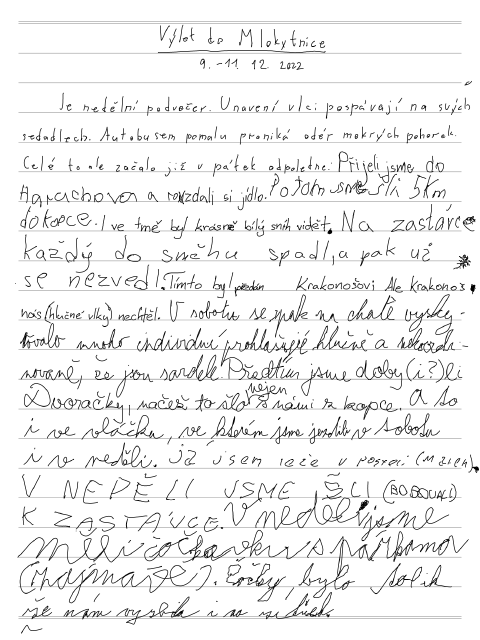 Výlet do Mlokytnice
9.-11 12 2022
Je nedělní podvečer. Unavení vlci pospávají na svých
sedadlech. Autobusem pomalu proniká odér mokrých pohorek.
Celé to ale začalo již v pátek odpoledne. Přijeli jsme do
Harrachova a rozdali si jídlo. Potom jsme šli 5km
do kopce. I ve tmě byl krásně bílý sníh vidět. Na zastávce
každý do sněhu spadl, a pak už
se nezvedl. Tímto byl předán Krakonošovi Ale Krakonoš
nás (hlučné vlky) nechtěl. V sobotu se pak na chatě vysky-
tovalo mnoho individuí prohlašující hlučně a nekoordi-
novaně, že jsou sardele. Předtím jsme doby(i?)li
Dvoračky, načež to šlo nejen s námi z kopce. A to
i ve vláčku, ve kterém jsme jezdili v sobotu
i v neděli. já jsem leže v posteli
V NEDĚLI JSME ŠLI (BOBOVALI)
K ZASTÁVCE. V neděli jsme
měli čočkovku s párkama
(zajímavé). Čočky bylo tolik
že nám vyzbyla i na